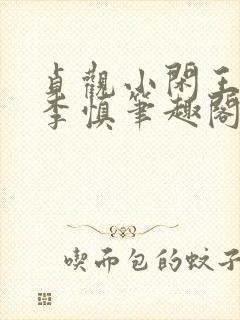 貞觀小閑王
李慎筆趣閣
喫而包的蚊子